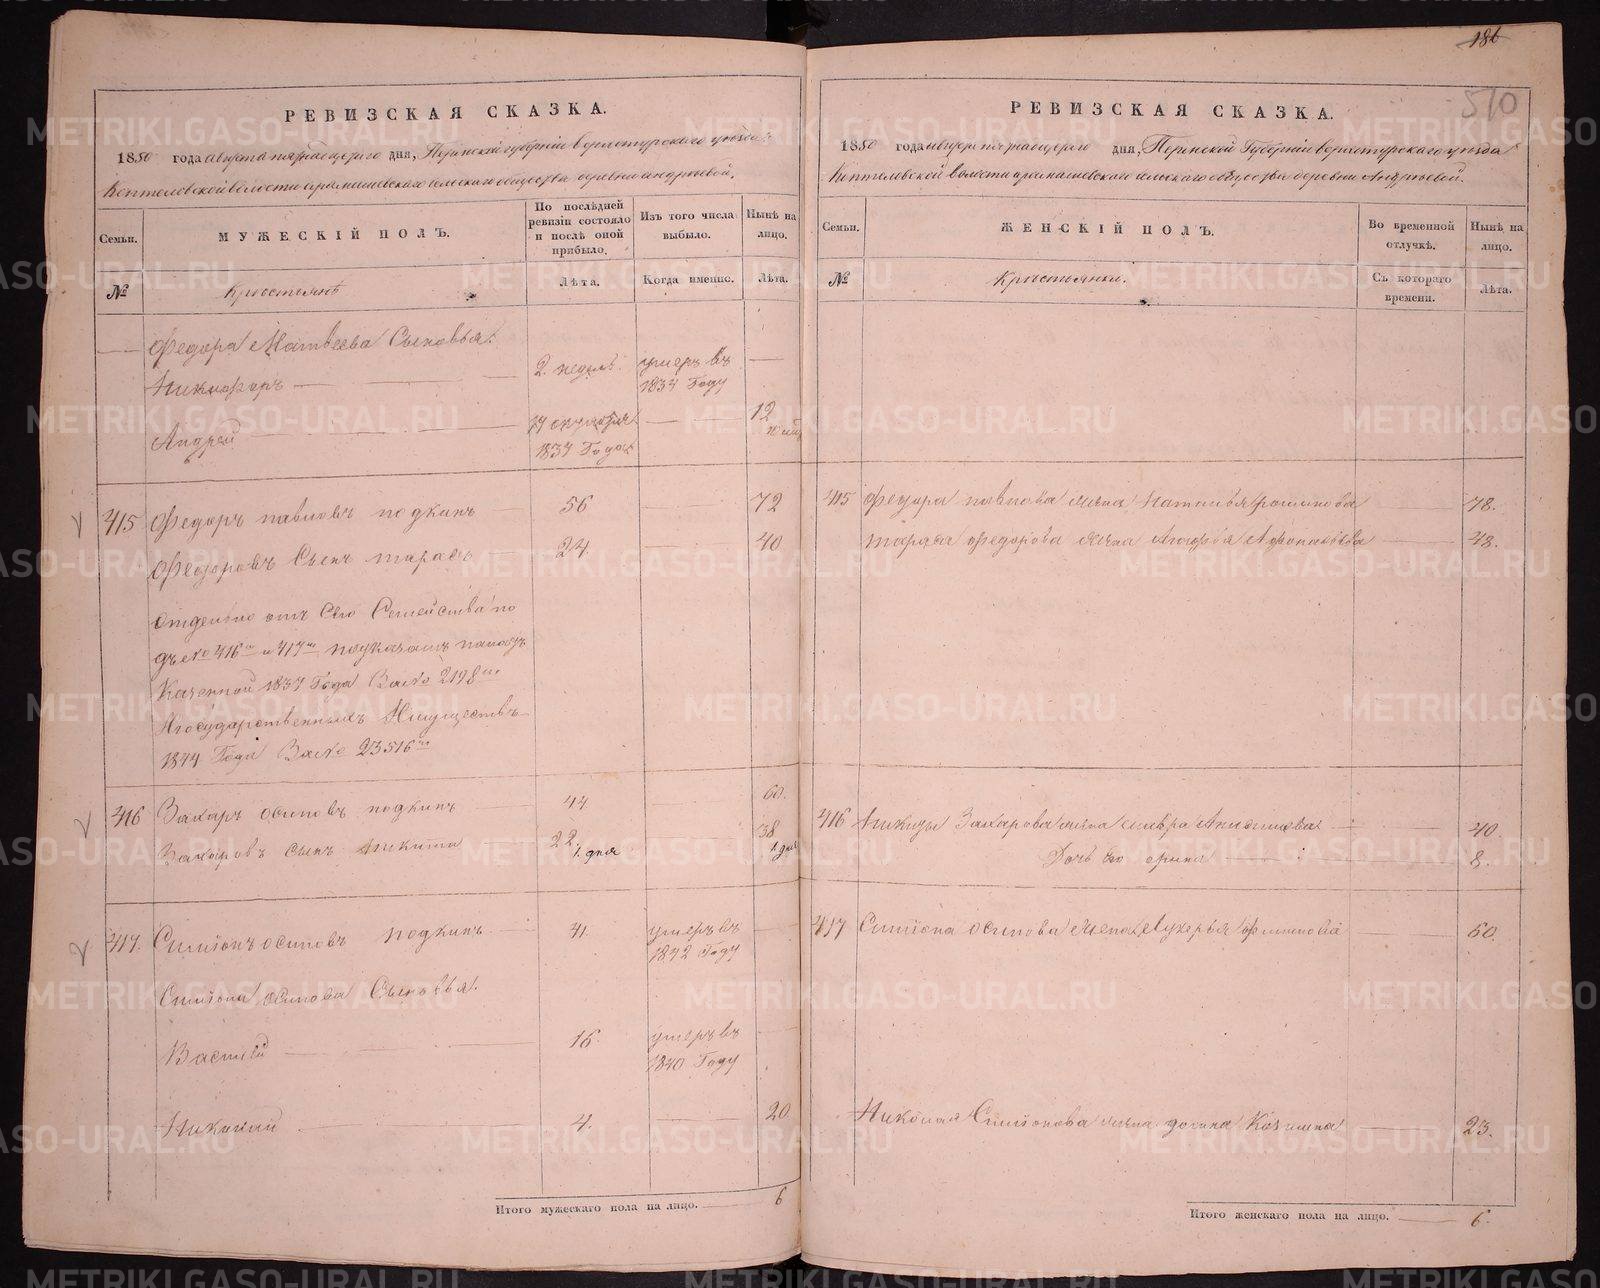 186
510
РЕВИЗСКАЯ СКАЗКА.
1850 года августа пятнадцатого дня, Пермской губернии верхотурского уезда
Коптеловской волости арамашевского сельского общества деревни андрьевой.
Семьи.
МУЖЕСКІЙ ПОЛЪ.
По послѣдней ревизіи состояло и послѣ оной прибыло.
Изъ того числа выбыло.
Нынѣ на лицо.
№
Крестьянѣ
Лѣта.
Когда именно.
Лѣта.
Федора Матвеева Сыновья.
Никифоръ 2. недел. умеръ въ 1834 Году
Андрей 1834 Года 12
415 Федоръ павловъ подкинъ 56 72
Федоровъ Сынъ тарасъ 24. 40
отдельно отъ Сего Семейства по
дъ № 416 и 417 по указамъ палатъ
Казенной 1837 Года За № 2198
Государственныхъ Имуществъ
1844 Года За № 23516
416 Захаръ осиповъ подкинъ 44 60.
Захаровъ сынъ Никита 22. 1. дня 38 1. дня
417. Симіонъ осиповъ подкинъ 41. умеръ въ 1842 Году
Симіона осипова Сыновья.
Василей 16. умеръ въ 1840 Году
Николай 4. 20
Итого мужескаго пола на лицо. 6
РЕВИЗСКАЯ СКАЗКА.
1850 года пятнадцатого дня, Пермской Губерніи верхотурского уезда
Коптеловской волости арамашевского сельского общества деревни Андрьевой.
Семьи.
ЖЕНСКІЙ ПОЛЪ.
Во временной отлучкѣ.
Нынѣ на лицо.
№
Крестьянки.
Съ котораго времени.
Лѣта.
415 Федора павлова жена 78.
тараса федорова жена 43.
416 Никиты Захарова жена Анисимова 40.
Дочь его орина 8.
417 Симіона осипова жена Лукерья 60.
Николая Симіонова жена Козмина 23.
Итого женскаго пола на лицо. 6.
METRIKI.GASO-URAL.RU